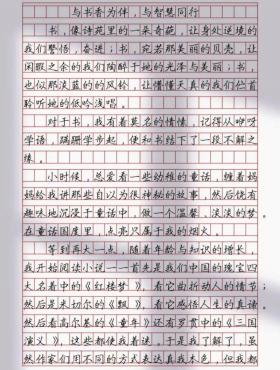 与书香为伴，与智慧同行
书，像诗苑里的一朵奇葩，让身处逆境的
我们警悟，奋进；书，宛若那美丽的贝壳，让
闲暇之余的我们陶醉于她的光泽与美丽；书，
也似那淡蓝的的风铃，让懵懂天真的我们伫首
聆听她的低吟浅唱。
对于书，我有着莫名的情愫，记得从咿呀
学语，蹒跚学步起，便和书结下了一段不解之
缘。
小时候，总爱看一些幼稚的童话，缠着妈
妈给我讲那些自以为很神秘的故事，然后饶有
趣味地沉浸于童话中，做一个温馨、淡淡的梦。
在童话国度里，点亮只属于我的烟火。
等到再大一点，随着年龄与知识的增长，
我开始阅读小说——首先是我们中国的瑰宝四
大名著中的《红楼梦》，看它曲折动人的情节；
然后是米切尔的《飘》，看它感悟人生的真谛。
然后看高尔基的《童年》还有罗贯中的《三国
演义》，这些都使我着迷。于是我了解了，虽
然作家们用不同的方式表达真我本色，但我都